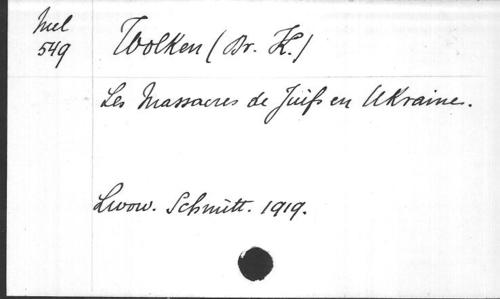 Mel
549
Wolken (Dr. H.)
Les Massacres de Juifs en Ukraine.
Lwow. Schmitt. 1919.